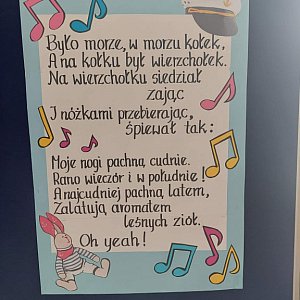 Było morze, w morzu kołek,
A na kołku był wierzchołek.
Na wierzchołku siedział
zając
I nóżkami przebierając,
śpiewał tak:
Moje nogi pachną cudnie.
Rano wieczór i w południe!
A najcudniej pachną latem,
Zalatują aromatem
leśnych ziół.
Oh yeah!